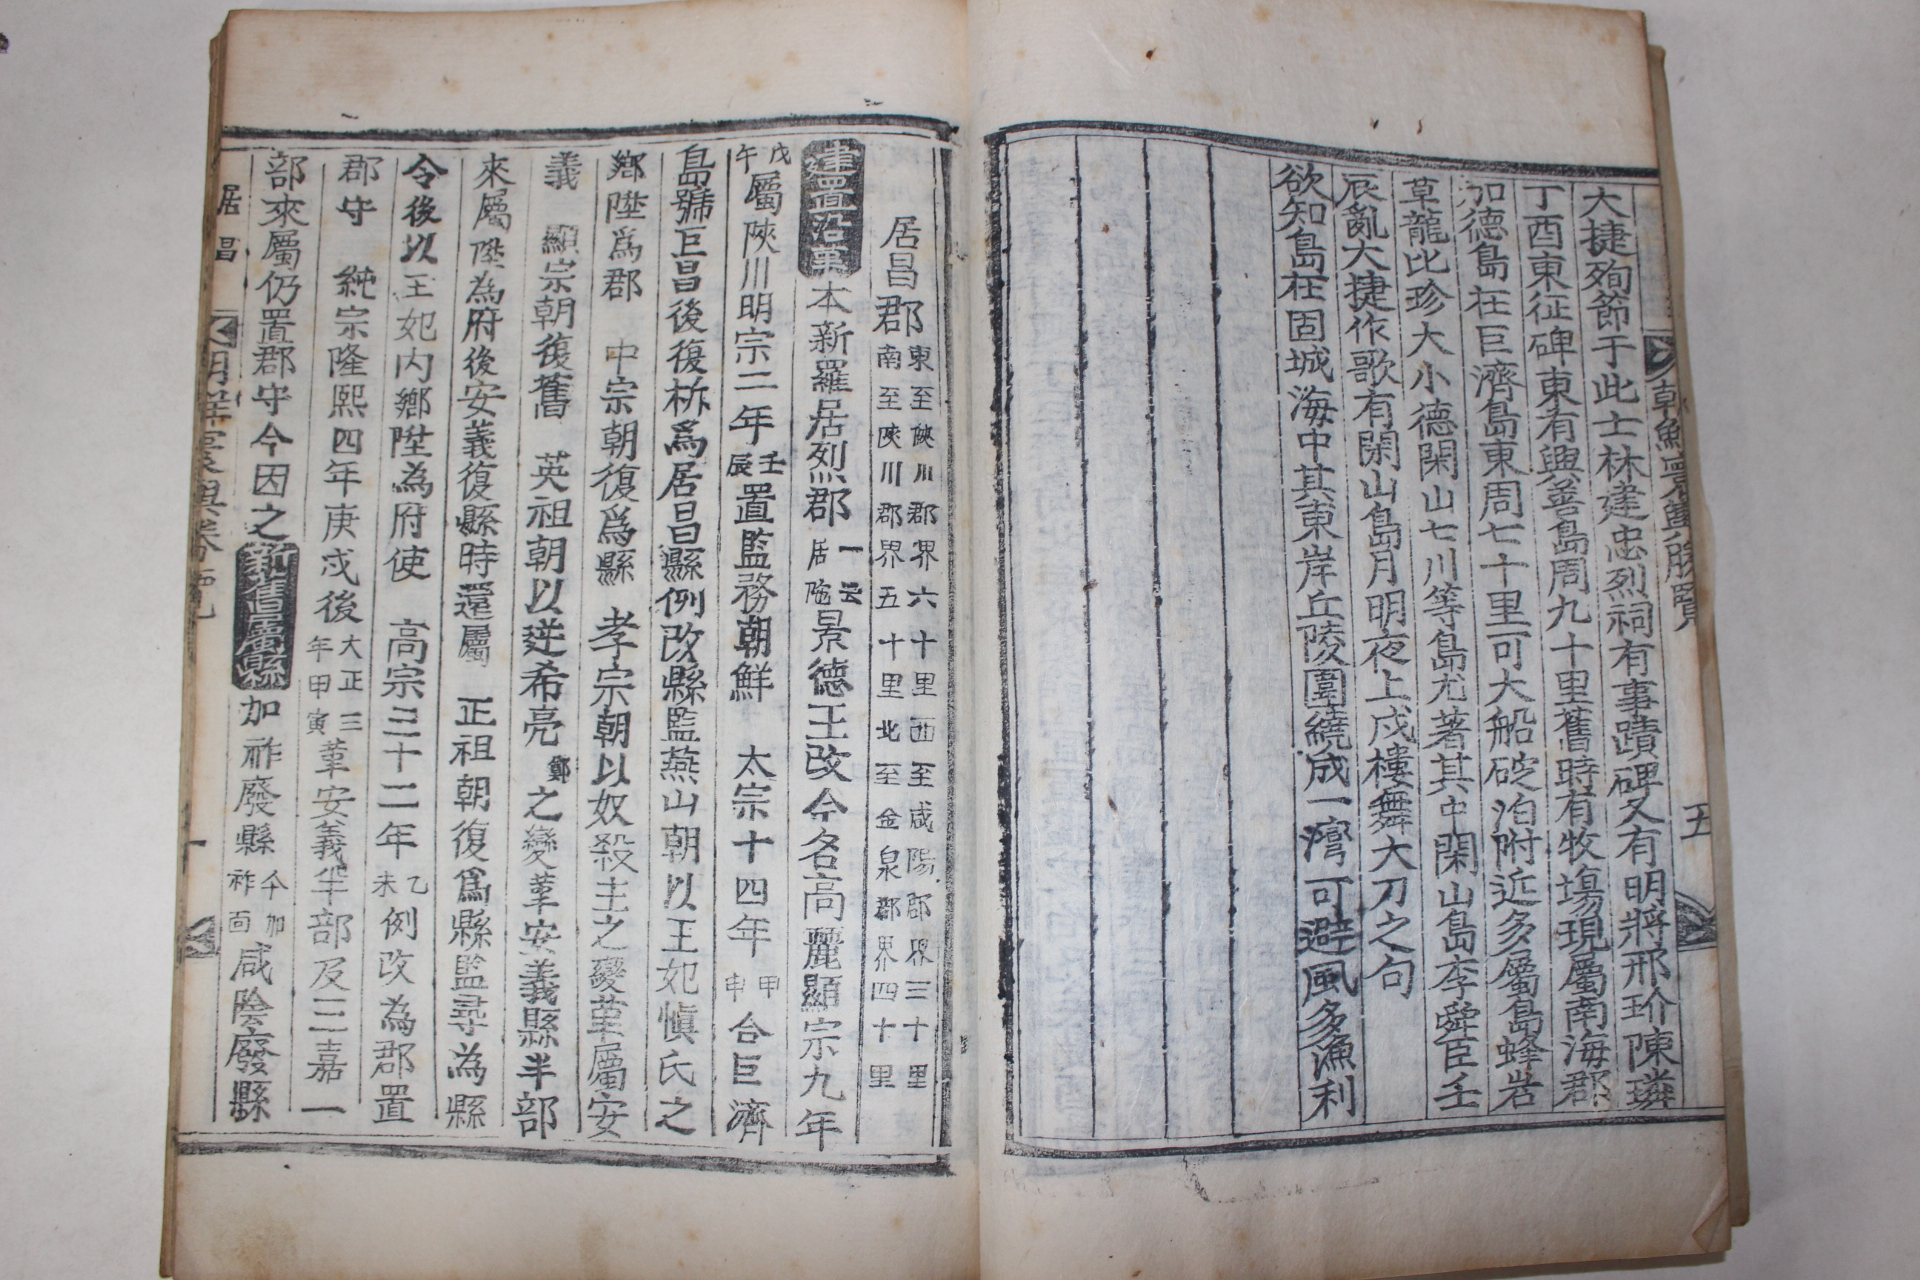 朝鮮寰輿勝覽 五
大捷殉節于此士林建忠烈祠有事蹟碑又有明將邢玠陳璘
丁酉東征碑東有興善島周九十里舊時有牧場現屬南海郡
加德島在巨濟島東周七十里可大船碇泊附近多屬島蜂岩
草龍比珍大小德閑山七川等島尤著其中閑山島李舜臣壬
辰亂大捷作歌有閑山島月明夜上戍樓舞大刀之句
欲知島在固城海中其東岸丘陵圍繞成一灣可避風多漁利
居昌郡 東至陜川郡界六十里西至咸陽郡界三十里
南至陜川郡界五十里北至金泉郡界四十里
建置沿革 本新羅居烈郡 一云居陁 景德王改今名高麗顯宗九年
戊午 屬陜川明宗二年 壬辰 置監務朝鮮 太宗十四年 甲申 合巨濟
島號巨昌後復析爲居昌縣例改縣監燕山朝以王妃愼氏之
鄕陞爲郡 中宗朝復爲縣 孝宗朝以奴殺主之變革屬安
義 顯宗朝復舊 英祖朝以逆希亮 鄭 之變革安義縣半部
來屬陞為府後安義復縣時還屬 正祖朝復爲縣監尋為縣
令後以王妃內鄕陞為府使 高宗三十二年 乙未 例改為郡置
郡守 純宗隆熙四年庚戌後 大正三年甲寅 革安義半部及三嘉一
部來屬仍置郡守今因之 新舊屬縣 加祚廢縣 今加祚面 咸陰廢縣
居昌 一